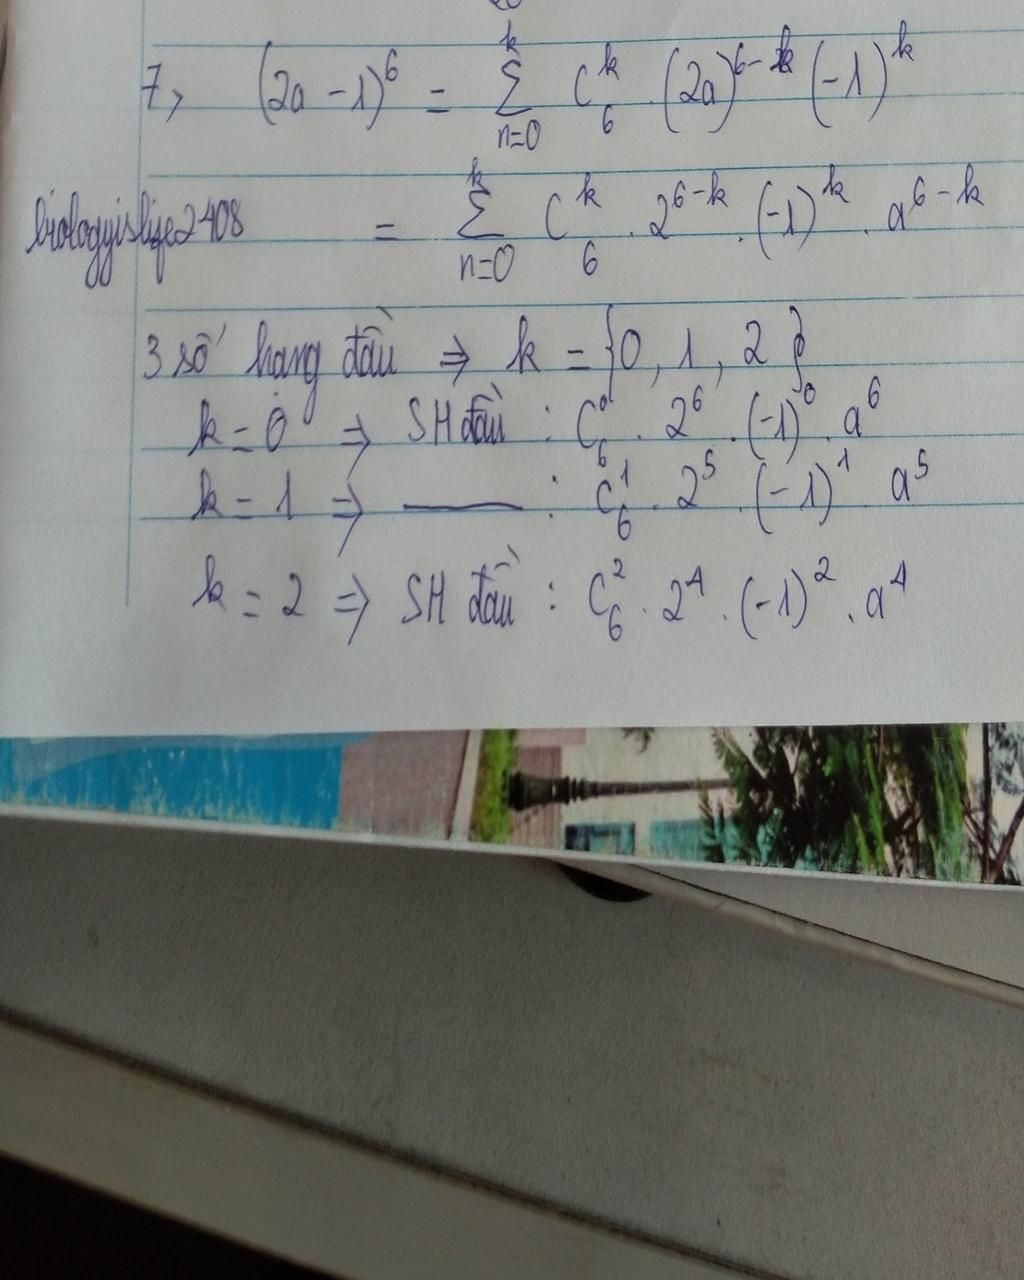 7, (2a - 1)^6 = \sum_{n=0}^{k} C_6^k . (2a)^{6-k} (-1)^k
biologyislife2408 = \sum_{n=0}^{k} C_6^k . 2^{6-k} . (-1)^k . a^{6-k}
3 số hạng đầu ⇒ k = {0, 1, 2}
k = 0 ⇒ SH đầu : C_6^0 . 2^6 . (-1)^0 . a^6
k = 1 ⇒ —— : C_6^1 . 2^5 . (-1)^1 a^5
k = 2 ⇒ SH đầu : C_6^2 . 2^4 . (-1)^2 . a^4